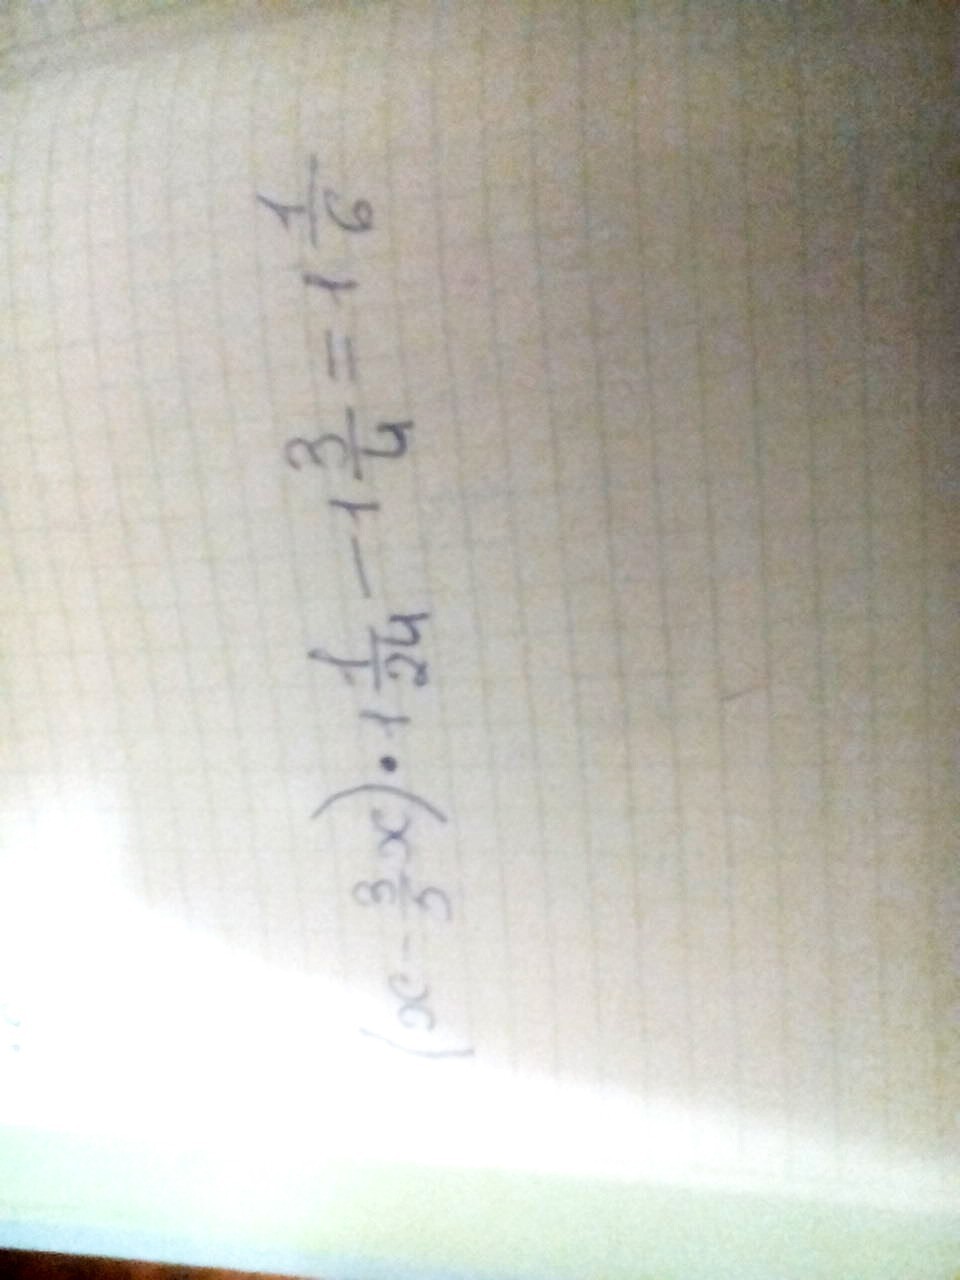 (x - 3/5 x) • 1 1/24 - 1 3/4 = 1 1/6